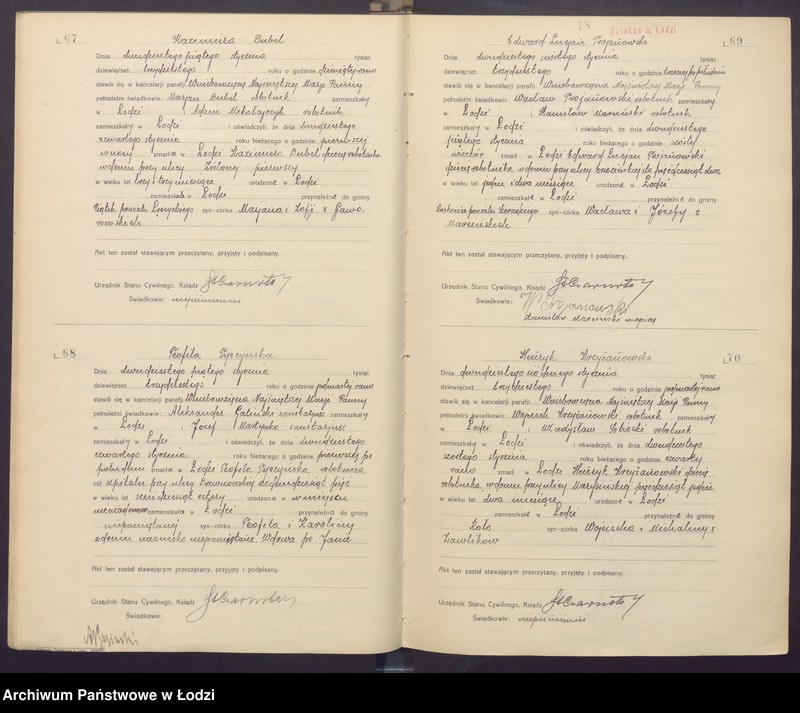 L. 67
Kazimiera Bubel
Dnia dwudziestego piątego stycznia tysiąc
dziewięćset trzydziestego roku o godzinie dziewiątej rano
stawili się w kancelarji parafji Wniebowzięcia Najświętszej Marji Panny
pełnoletni świadkowie: Marjan Bubel robotnik zamieszkały
w Łodzi i Adam Mikołajczyk robotnik
zamieszkały w Łodzi i oświadczyli, że dnia dwudziestego
czwartego stycznia roku bieżącego o godzinie pierwszej
w nocy zmarła w Łodzi Kazimiera Bubel córka robotnika
w domu przy ulicy Zielonej pierwszy
w wieku lat trzy i trzy miesiące urodzona w Łodzi
zamieszkała w Łodzi przynależna do gminy
Piątek powiatu Łęczyckiego syn-córka Marjana i Zofji z
Akt ten został stawającym przeczytany, przyjęty i podpisany.
Urzędnik Stanu Cywilnego, Ksiądz
Świadkowie: niepiśmienni
L. 68
Teofila Tyczyńska
Dnia dwudziestego piątego stycznia tysiąc
dziewięćset trzydziestego roku o godzinie jedenastej rano
stawili się w kancelarji parafji Wniebowzięcia Najświętszej Marji Panny
pełnoletni świadkowie: Aleksander Galiński sanitarjusz zamieszkały
w Łodzi i Józef Martynka sanitarjusz
zamieszkały w Łodzi i oświadczyli, że dnia dwudziestego
czwartego stycznia roku bieżącego o godzinie pierwszej po
południu zmarła w Łodzi Teofila Tyczyńska robotnica
w szpitalu przy ulicy Drewnowskiej siedemdziesiąt pięć
w wieku lat sześćdziesiąt cztery urodzona w miejscu
niewiadomem zamieszkała w Łodzi przynależna do gminy
niepamiętanej syn-córka Teofila i Karoliny
z domu nazwisko niepamiętane. Wdowa po Janie
Akt ten został stawającym przeczytany, przyjęty i podpisany.
Urzędnik Stanu Cywilnego, Ksiądz
Świadkowie:
18
L. 69
Edward Lucjan Trojanowski
Dnia dwudziestego szóstego stycznia tysiąc
dziewięćset trzydziestego roku o godzinie trzeciej po południu
stawili się w kancelarji parafji Wniebowzięcia Najświętszej Marji Panny
pełnoletni świadkowie: Wacław Trojanowski robotnik zamieszkały
w Łodzi i Stanisław Marciński robotnik
zamieszkały w Łodzi i oświadczyli, że dnia dwudziestego
piątego stycznia roku bieżącego o godzinie szóstej
wieczór zmarł w Łodzi Edward Lucjan Trojanowski
syn robotnika, w domu przy ulicy pięćdziesiąt dwa
w wieku lat jeden i dwa miesiące urodzone w Łodzi
zamieszkałe w Łodzi przynależne do gminy
powiatu Sieradzkiego syn-córka Wacława i Józefy z
Marcińskich
Akt ten został stawającym przeczytany, przyjęty i podpisany.
Urzędnik Stanu Cywilnego, Ksiądz
Świadkowie: W Trojanowski
Stanisław Marciński
L. 70
Henryk Krzyżanowski
Dnia dwudziestego siódmego stycznia tysiąc
dziewięćset trzydziestego roku o godzinie jedenastej rano
stawili się w kancelarji parafji Wniebowzięcia Najświętszej Marji Panny
pełnoletni świadkowie: Wojciech Krzyżanowski robotnik zamieszkały
w Łodzi i Władysław robotnik
zamieszkały w Łodzi i oświadczyli, że dnia dwudziestego
szóstego stycznia roku bieżącego o godzinie czwartej
rano zmarł w Łodzi Henryk Krzyżanowski
robotnika, w domu przy ulicy Marysińskiej pięćdziesiąt jeden
w wieku lat dwa miesiące urodzone w Łodzi
zamieszkałe w Łodzi przynależne do gminy
Koło syn-córka Wojciecha i Michaliny z
Pawlików
Akt ten został stawającym przeczytany, przyjęty i podpisany.
Urzędnik Stanu Cywilnego, Ksiądz
Świadkowie: niepiśmienni
Archiwum Państwowe w Łodzi